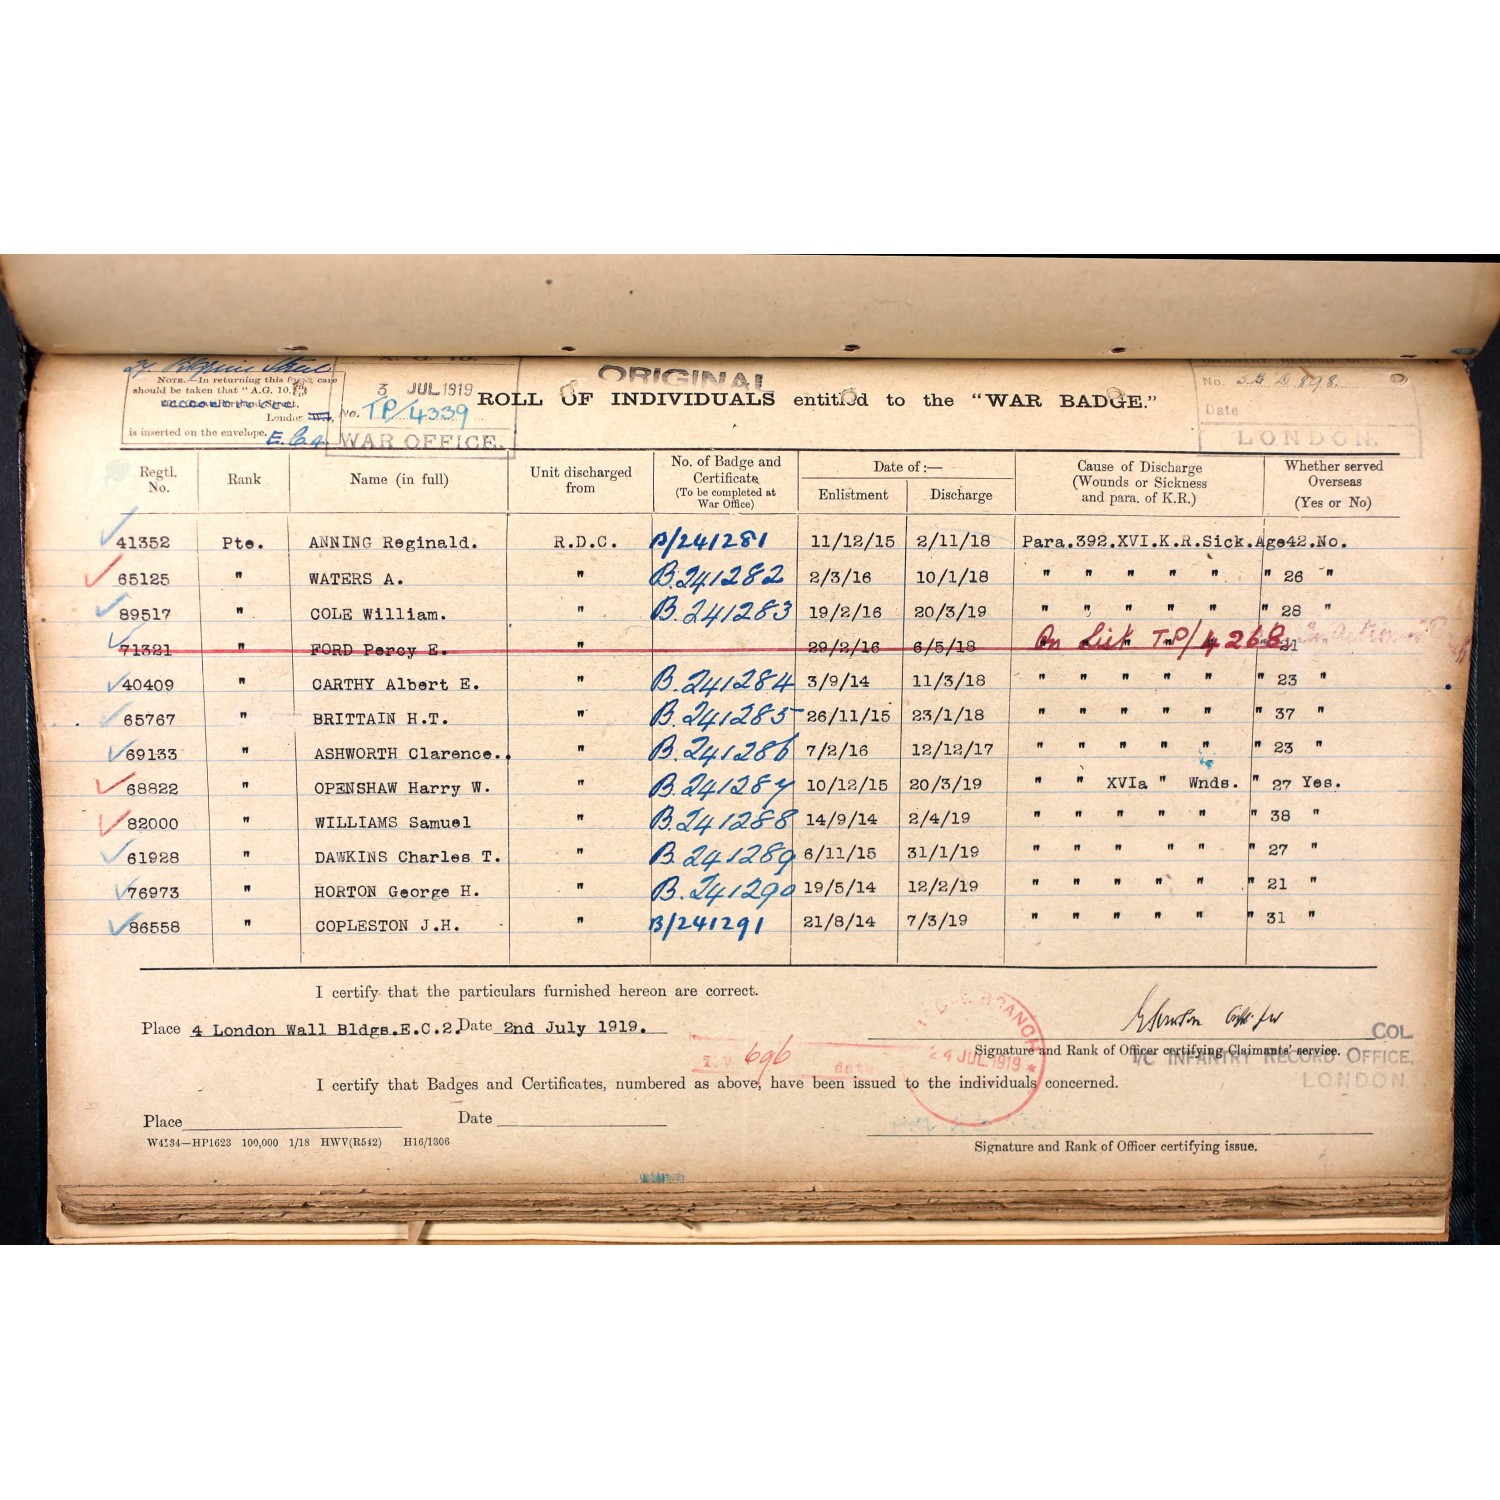 NOTE.—In returning this form care
should be taken that "A.G. 10."
London
is inserted on the envelope. E.C.4.
3 JUL 1919
No. T.P/4339
WAR OFFICE.
ORIGINAL
ROLL OF INDIVIDUALS entitled to the "WAR BADGE."
No.
Date
LONDON.
Regtl. No. Rank Name (in full) Unit discharged from No. of Badge and Certificate (To be completed at War Office) Date of:— Enlistment Discharge Cause of Discharge (Wounds or Sickness and para. of K.R.) Whether served Overseas (Yes or No)
41352 Pte. ANNING Reginald. R.D.C. B/241281 11/12/15 2/11/18 Para.392.XVI.K.R.Sick.Age42.No.
65125 " WATERS A. " B.241282 2/3/16 10/1/18 " " " " " " 26 "
89517 " COLE William. " B.241283 19/2/16 20/3/19 " " " " " " 28 "
71321 " FORD Percy E. " 29/2/16 6/5/18 On List T.P/4268 21
40409 " CARTHY Albert E. " B.241284 3/9/14 11/3/18 " " " " " " 23 "
65767 " BRITTAIN H.T. " B.241285 26/11/15 23/1/18 " " " " " " 37 "
69133 " ASHWORTH Clarence. " B.241286 7/2/16 12/12/17 " " " " " " 23 "
68822 " OPENSHAW Harry W. " B.241287 10/12/15 20/3/19 " " XVIa " Wnds. " 27 Yes.
82000 " WILLIAMS Samuel " B.241288 14/9/14 2/4/19 " " " " " " 38 "
61928 " DAWKINS Charles T. " B.241289 6/11/15 31/1/19 " " " " " " 27 "
76973 " HORTON George H. " B.241290 19/5/14 12/2/19 " " " " " " 21 "
86558 " COPLESTON J.H. " B/241291 21/8/14 7/3/19 " " " " " " 31 "
I certify that the particulars furnished hereon are correct.
Place 4 London Wall Bldgs.E.C.2. Date 2nd July 1919.
COL
Signature and Rank of Officer certifying Claimants' service.
I/C INFANTRY RECORD OFFICE,
LONDON.
BRANCH
24 JUL 1919
696
date
I certify that Badges and Certificates, numbered as above, have been issued to the individuals concerned.
Place Date
W4234—HP1623 100,000 1/18 HWV(R542) H16/1306
Signature and Rank of Officer certifying issue.